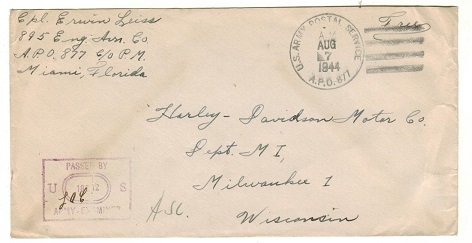 Cpl. Erwin Luss
895 Eng. Avn. Co
A.P.O. 877 C/O P.M.
Miami, Florida
U.S. ARMY POSTAL SERVICE
AUG
7
1944
A.P.O. 877
Free
Harley-Davidson Motor Co.
Dept. M I,
Milwaukee 1
Wisconsin
PASSED BY
U S
ARMY EXAMINER